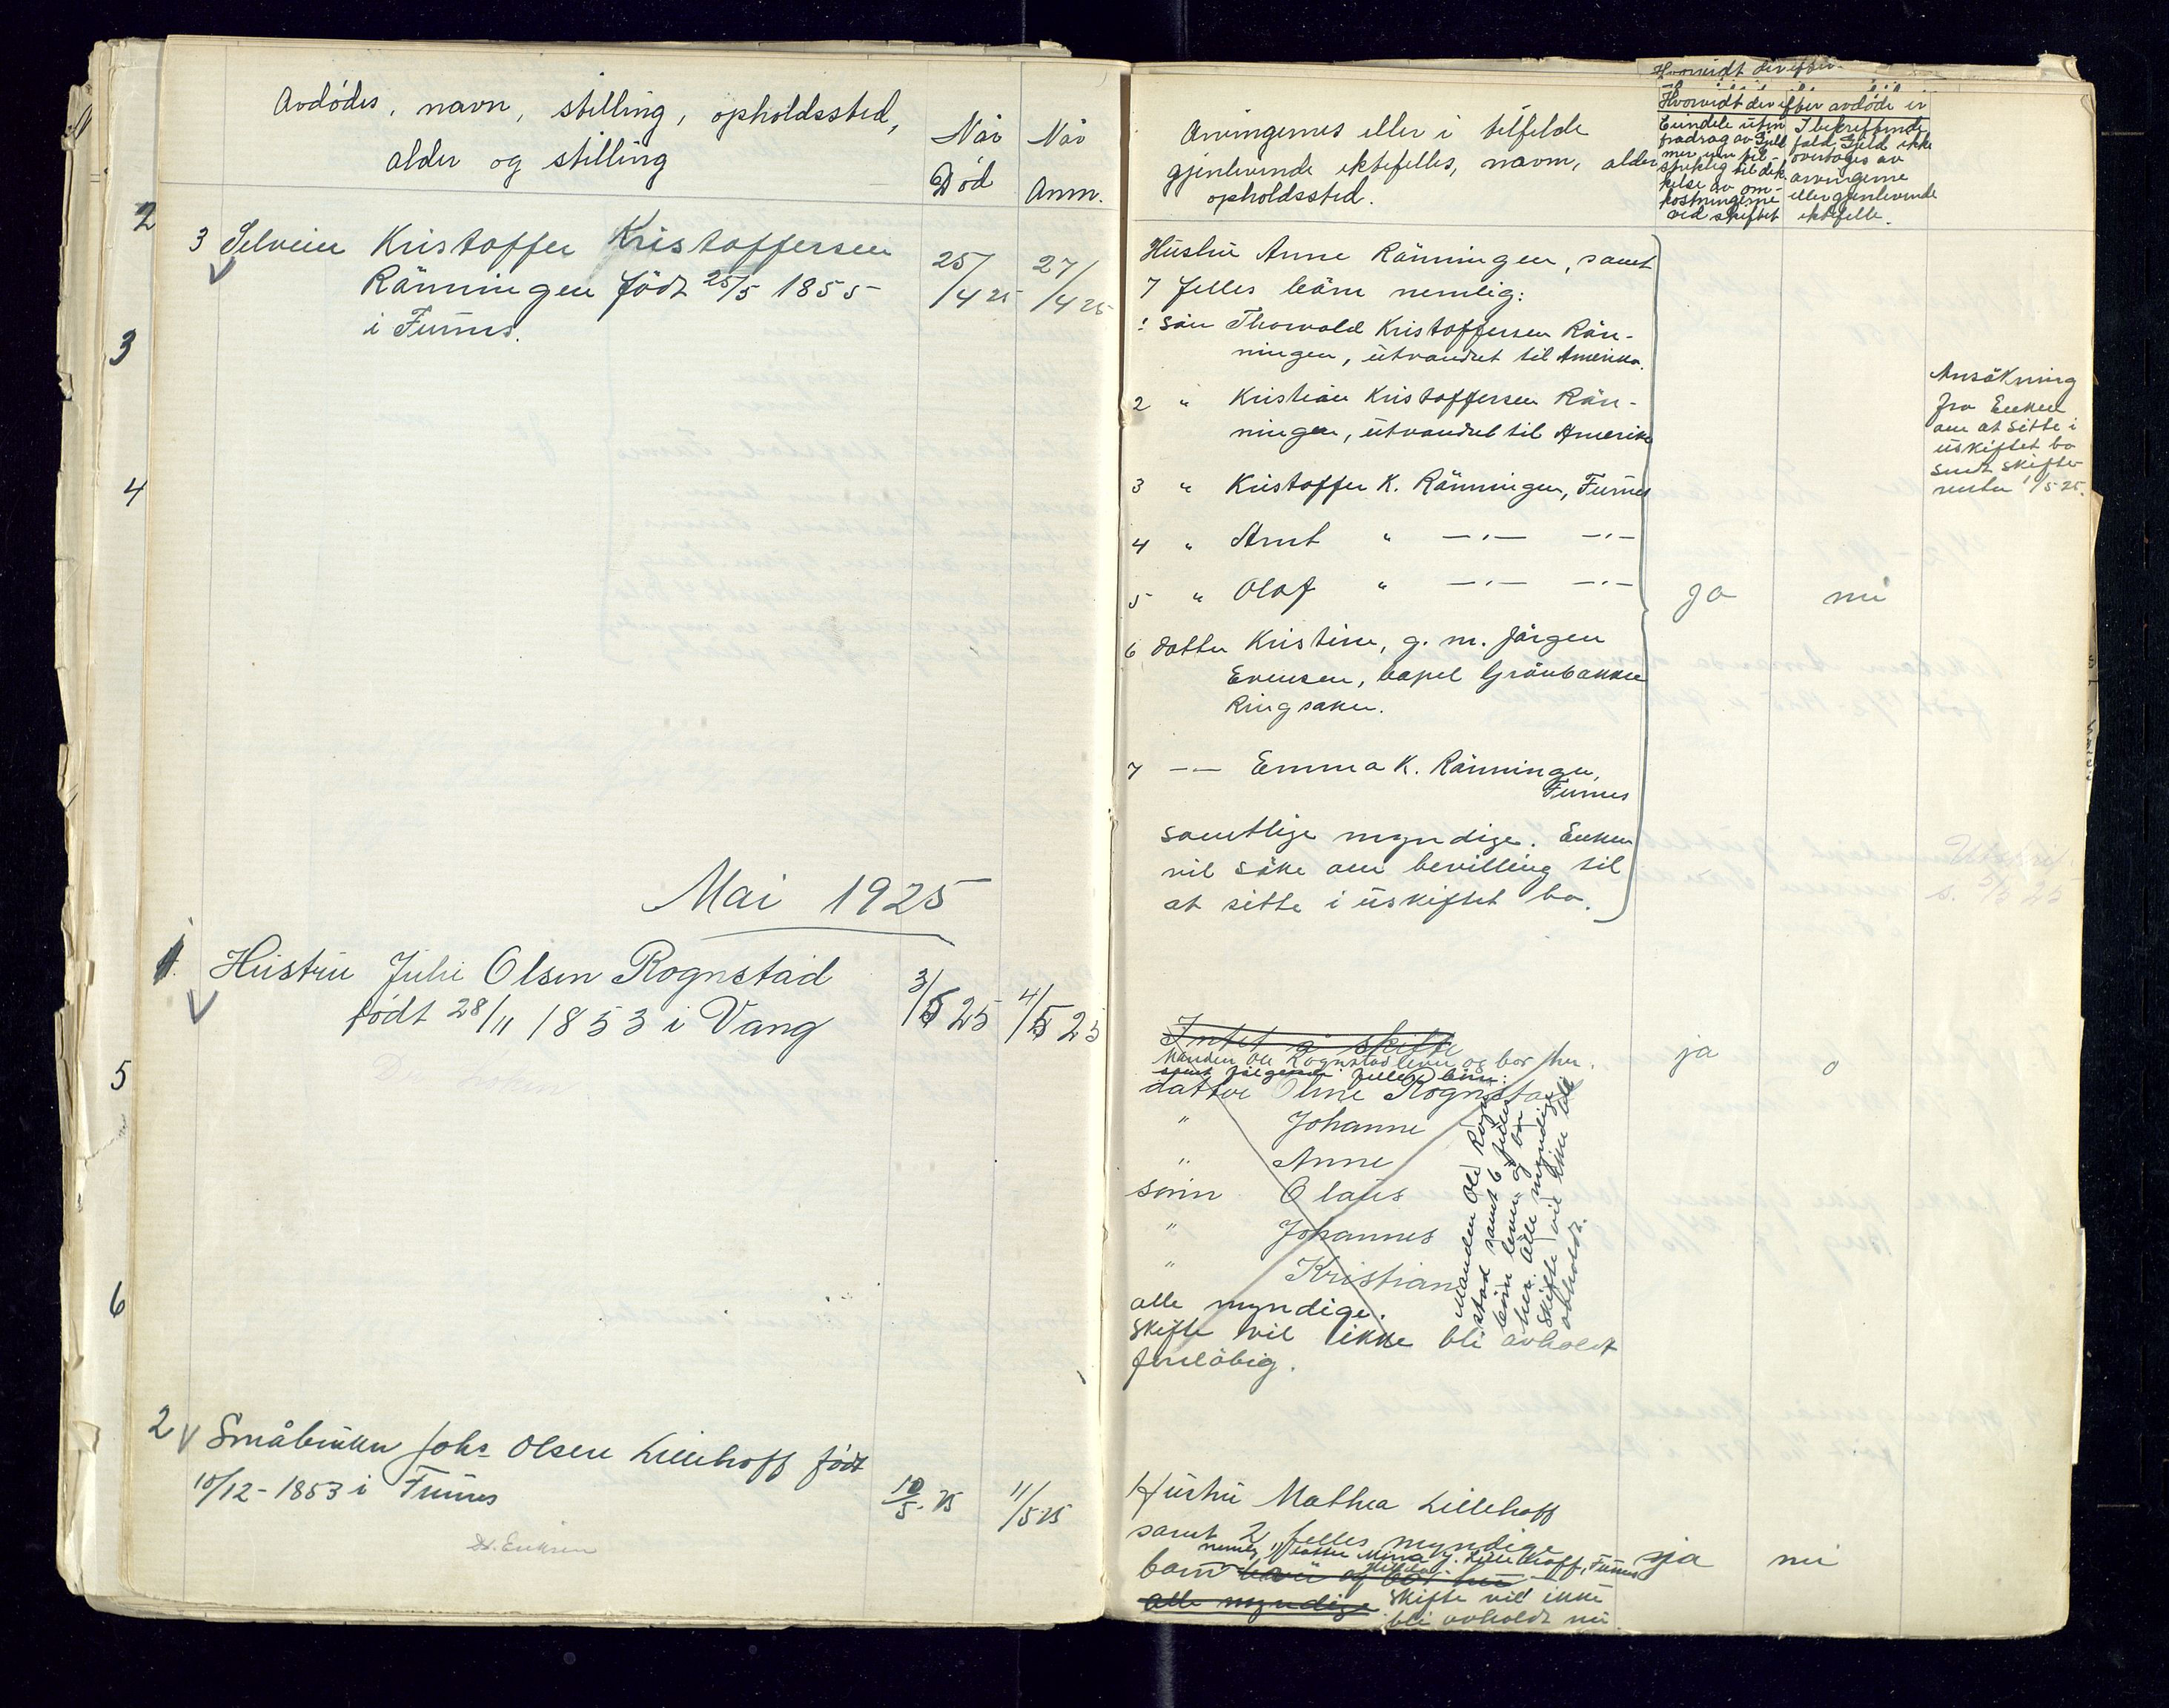 Avdødes, navn, stilling, opholdssted,
alder og stilling
Når
Död
Når
Anm.
2
3
4
5
6
3 Selveier Kristoffer Kristoffersen
Rånningen født 25/5 1855
i Furnes.
25/4 25
27/4 25
Mai 1925
1. Hustru Julie Olsen Rognstad
født 28/11 1853 i Vang
3/5 25
4/5 25
2 Småbruker Johs Olsen Lillehoff født
10/12-1853 i Furnes
10/5-25
11/5 25
Dr. Eriksen
Arvingernes eller i tilfelde
gjenlevende ektefelles, navn, alder
opholdssted.
Hvorvidt der efter
Hvorvidt der efter avdøde er
Eiendele uten
fradrag av Gjeld
mer enn til-
strekkelig til dek-
kelse av om-
kostningerne
ved skiftet
I bekreftende
fald Gjeld ikke
overtages av
arvingerne
eller gjenlevende
ektefelle.
Hustru Anne Rånningen, samt
7 felles börn nemlig:
1 sön Thorvald Kristoffersen Rån-
ningen, utvandret til Amerika.
2 " Kristian Kristoffersen Rån-
ningen, utvandret til Amerika
3 " Kristoffer K. Rånningen, Furnes
4 " Arnt " —"— —"—
5 " Olaf " —"— —"—
6 datter Kristine, g. m. Jörgen
Evensen, Grönbakken
Ringsaker.
7 —"— Emma K. Rånningen,
Furnes
samtlige myndige. Enken
vil söke om bevilling til
at sitte i uskiftet bo.
ja
nei
Ansökning
fra Enken
om at sitte i
uskiftet bo
sendt skifte-
retten 1/5 25.
Intet å skifte
Manden Ole Rognstad lever og bor her.
samt følgende felles börn:
datter Oline Rognstad
" Johanne
" Anne
sönn Olaus
" Johannes
" Kristian
alle myndige.
Skifte vil ikke bli avholdt
foreløbig.
Manden Ole Rogn-
stad samt 6 felles
börn lever og bor
her. Alle myndige
Skifte vil ikke bli
avholdt.
ja
o
Hustru Mathea Lillehoff
samt 2 felles myndige
nemlig datter Mina J. Lillehoff, Furnes
barn og bor her
alle myndige Skifte vil ikke
bli avholdt nu
ja
nei